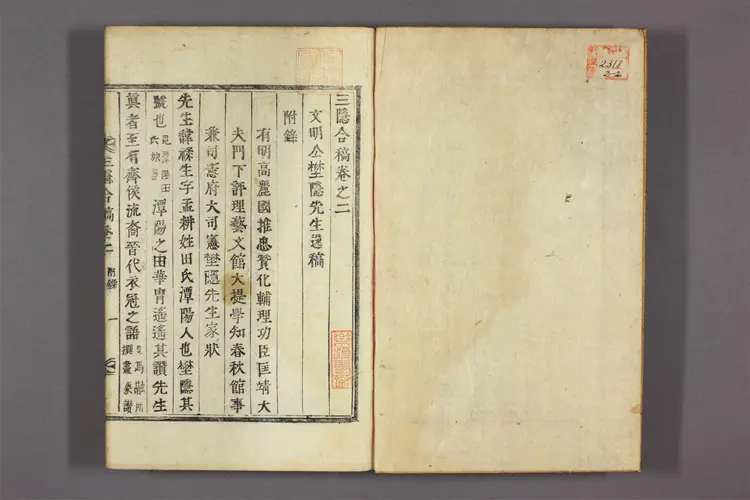 三隱合稿卷之二
文明公壄隱先生逸稿
附錄
有明高麗國推忠贊化輔理功臣匡靖大
夫門下評理藝文館大提學知春秋館事
兼司憲府大司憲壄隱先生家狀
先生諱祿生字孟耕姓田氏潭陽人也壄隱其
號也 潭陽之田華胄遙遙其讚先生
眞者至有齊侯流裔晉代衣冠之語
三隱合稿卷二 附錄 一
2318
2-2